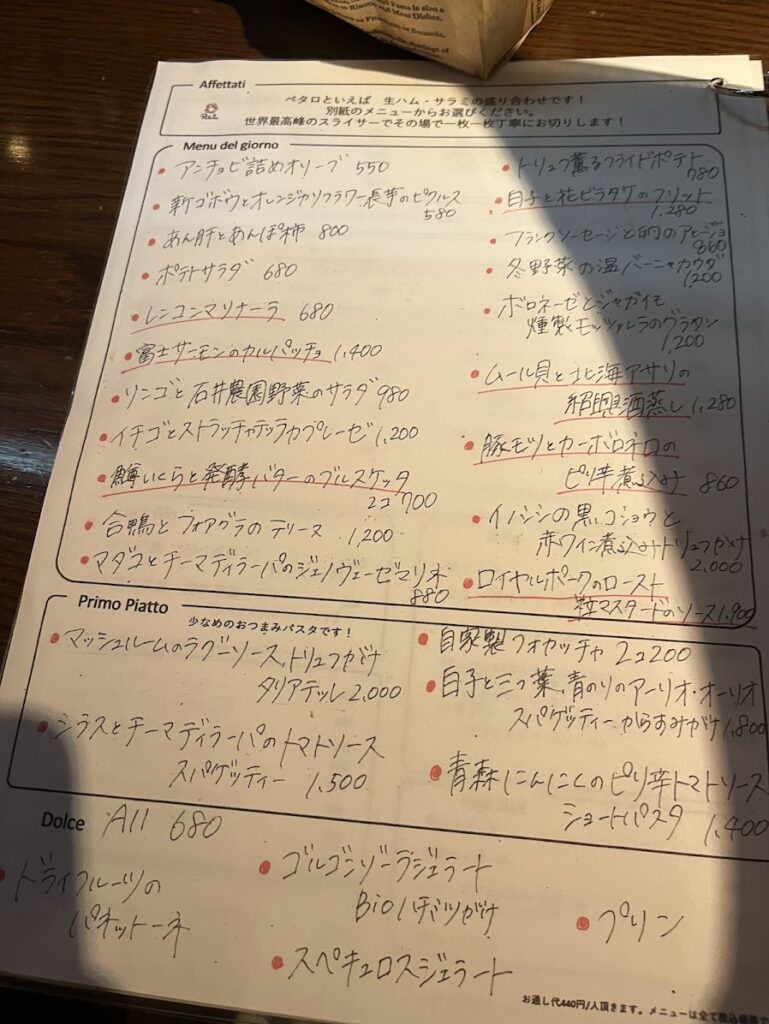 Affettati
ペタロといえば 生ハム・サラミの盛り合わせです！
別紙のメニューからお選びください。
世界最高峰のスライサーでその場で一枚一枚丁寧にお切りします！
Menu del giorno
アンチョビ詰めオリーブ 550
新ゴボウとオレンジカリフラワー長芋のピクルス
580
あん肝とあんぽ柿 800
ポテトサラダ 680
レンコンマリナーラ 680
富士サーモンのカルパッチョ 1,400
リンゴと石井農園野菜のサラダ 980
イチゴとストラッチャテッラカプレーゼ 1,200
鱒いくらと発酵バターのブルスケッタ
2コ 700
合鴨とフォアグラのテリーヌ 1,200
マダコとチーマディラーパのジェノヴェーゼマリネ
880
トリュフ薫るフライドポテト
780
白子と花ビラタケのフリット
1,280
フランクソーセージと的のアヒージョ
860
冬野菜の温バーニャカウダ
1,200
ボロネーゼとジャガイモ
燻製モッツァレラのグラタン
1,200
ムール貝と北海アサリの
紹興酒蒸し 1,280
豚モツとカーボロネロの
ピリ辛煮込み 860
イノシシの黒コショウと
赤ワイン煮込みトリュフがけ
2,000
ロイヤルポークのロースト
粒マスタードのソース 1,900
Primo Piatto
少なめのおつまみパスタです！
マッシュルームのラグーソース,トリュフがけ
タリアテッレ 2,000
シラスとチーマディラーパのトマトソース
スパゲッティー 1,500
自家製フォカッチャ 2コ200
白子と三つ葉,青のりのアーリオ・オーリオ
スパゲッティー からすみがけ 1,800
青森にんにくのピリ辛トマトソース
ショートパスタ 1,400
Dolce All 680
ドライフルーツの
パネットーネ
ゴルゴンゾーラジェラート
Bioハチミツがけ
スペキュロスジェラート
プリン
お通し代440円/人頂きます。メニューは全て税込価格